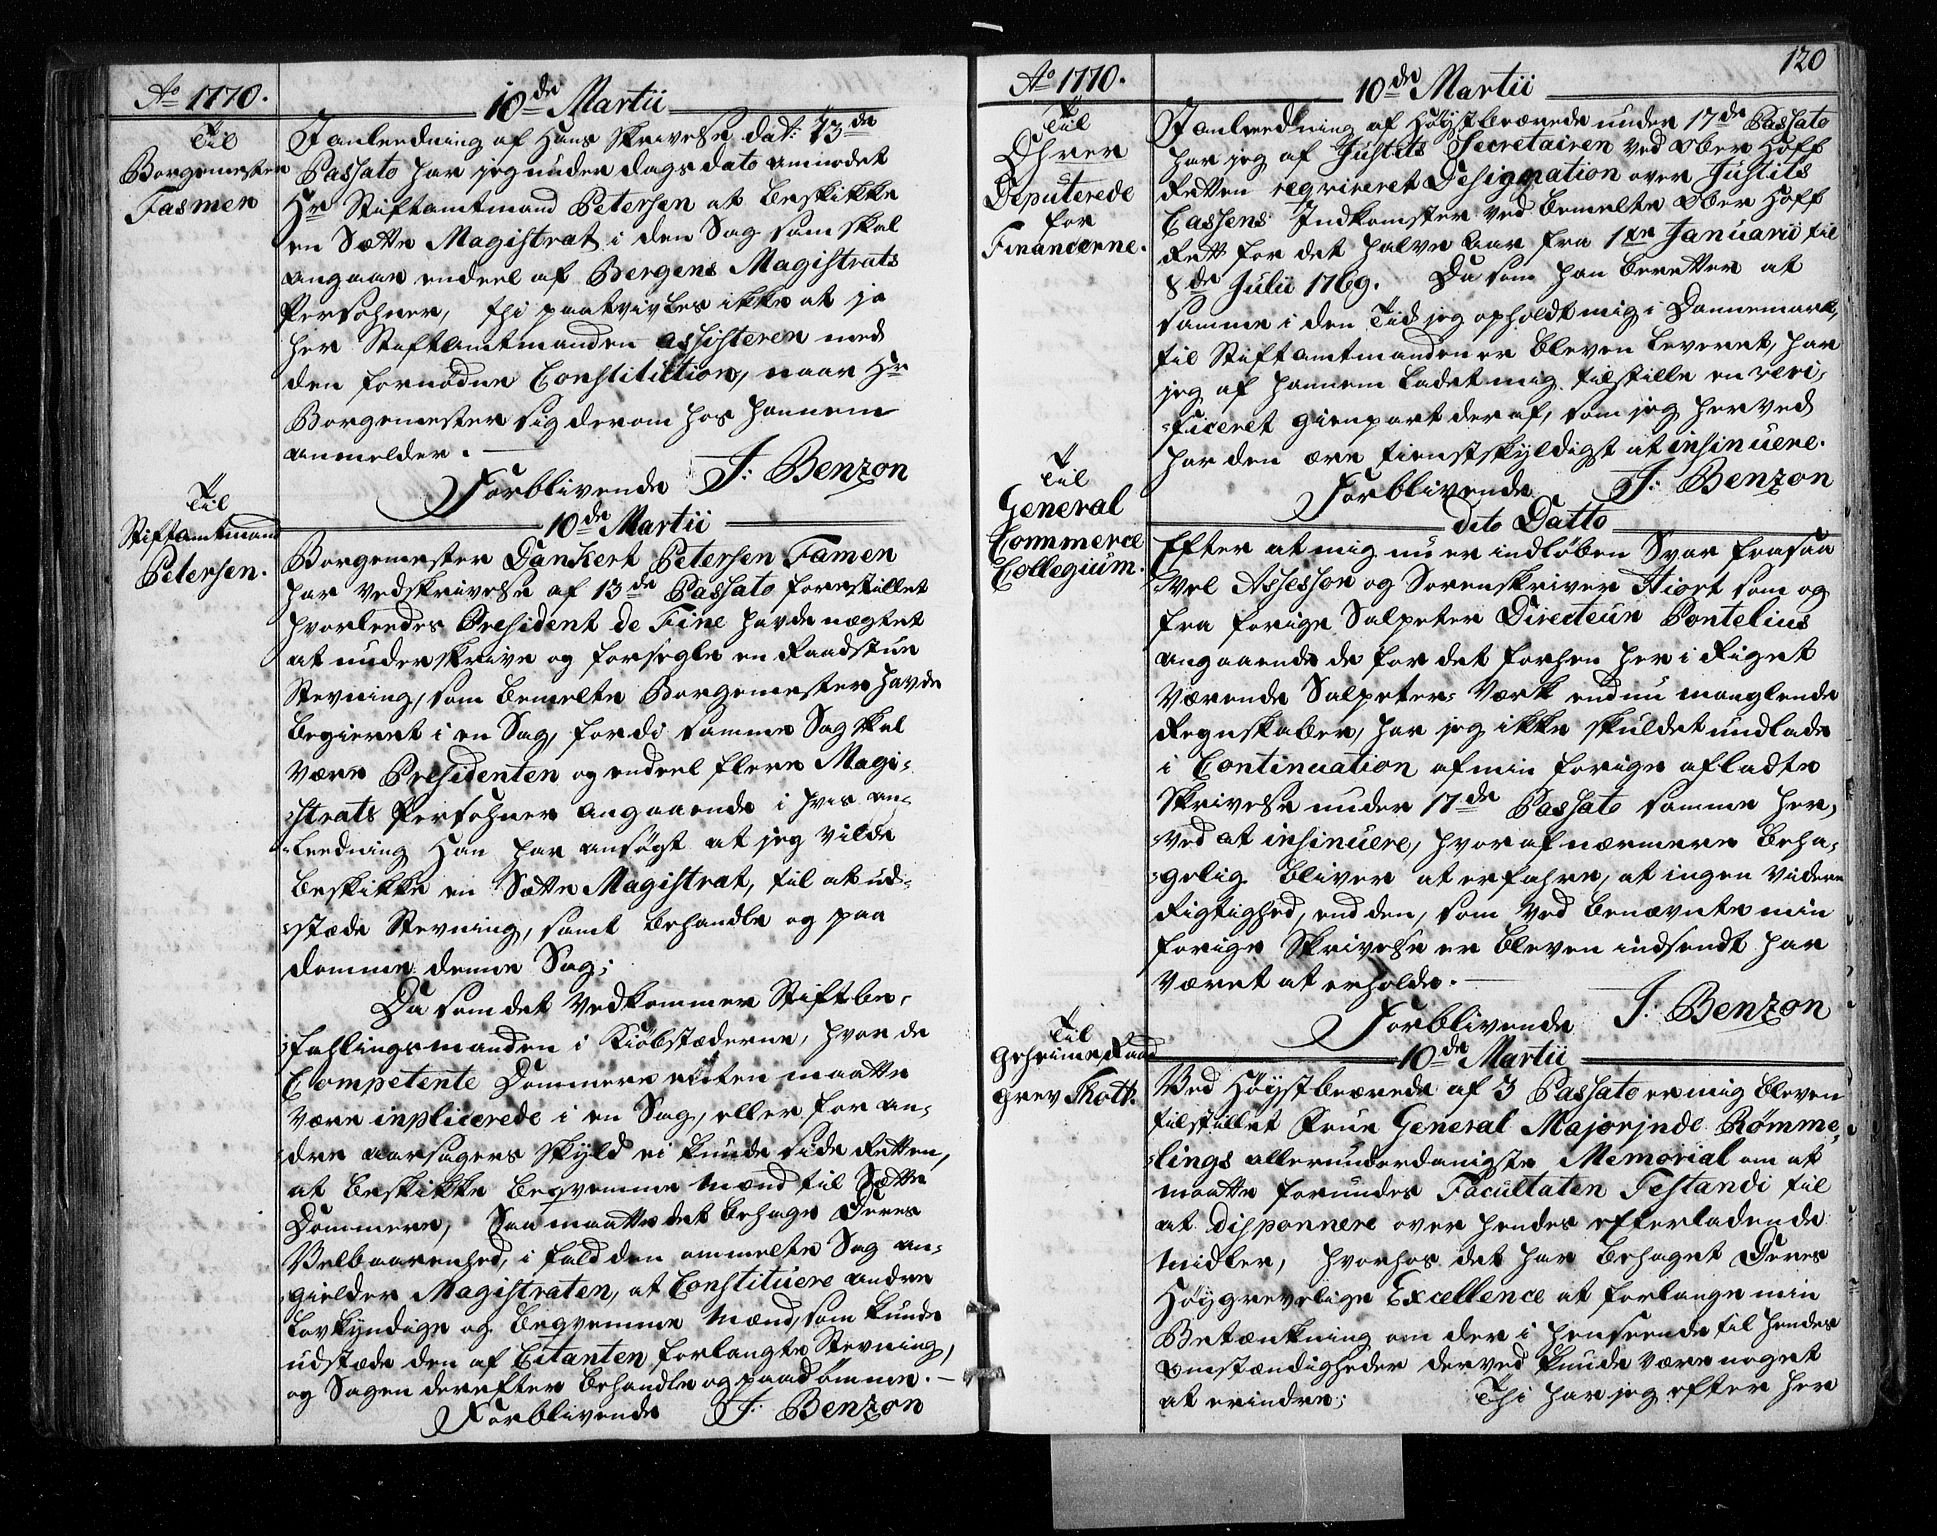 Ao 1770.
10de Martii
Til
Borgemester
Fasmer
I anleedning af Hans Skrivelse dat: 13de
Passato har jeg under dags dato anmodet
Hr Stiftamtmand Petersen at beskikke
en Sætte Magistrat i den Sag som skal
angaae endeel af Bergens Magistrats
Persohner, thi paatvivles ikke at jo
Her Stiftamtmanden assisterer med
den fornødne Constitution, naar Hr
Borgemester sig derom hos hannem
anmelder.
Forblivende J: Benzon
10de Martii
Til
Stiftamtmand
Petersen.
Borgemester Dankert Petersen Famer
har ved skrivelse af 13de Passato forestillet
hvorleedes President de Fine havde nægtet
at underskrive og forsegle en Raadstue
Stevning, som bemelte Borgemester havde
begieret i en Sag, fordi samme Sag skal
være Presidenten og endeel flere Magi-
strats Persohner angaaende i hvis an-
leedning Han har ansøgt at jeg vilde
beskikke en Sætte Magistrat, til at ud-
stæde Stevning, samt behandle og paa
domme denne Sag;
Da som det vedkommer Stiftbe-
fahlingsmanden i Kiøbstæderne, hvor de
Competente Dommere enten maatte
være inplicerede i en Sag, eller for an-
dre aarsagers skyld ei kunde side Retten,
at beskikke beqvemme Mænd til Sætte
Dommere, Saa maatte det behage Deres
Velbaarenhed, i fald den ommelte Sag an-
gielder Magistraten, at Constituere andre
Lovkyndige og beqvemme Mænd, som kunde
udstæde den af Citanten forlangte Stevning,
og Sagen derefter behandle og paadømme.
Forblivende J: Benzon
120
Ao 1770.
10de Martii
Til
Ohrer
Deputerede
for
Financerne.
I anleedning af Høystbeærede under 17de Passato
har jeg af Justits Secretairen ved Ober Hoff
Retten reqvireret Designation over Justits
Cassens Indkomster ved bemelte Ober Hoff
Rett for det halve Aar fra 1ste Januarii til
8de Julii 1769. Da som han beretter at
samme i den Tid jeg opholdt mig i Dannemark,
til Stiftamtmanden er bleven leveret, har
jeg af hannem ladet mig tilstille en veri-
ficeret gienpart deraf, som jeg herved
har den ære tienstskyldigst at insinuere.
Forblivende J: Benzon
dito Datto
Til
General
Commerce
Collegium.
Efter at mig nu er indløben Svar fra saa
vel Assessor og Sorenskriver Hiort som og
fra forige Salpeter Directeur Pontelius
angaaende de for det forhen her i Riget
værende Salpeter-Værk endnu manglende
Regnskaber, har jeg ikke skuldet undlade
i Continuation af min forige afladte
Skrivelse under 17de Passato samme her-
ved at insinuere, hvoraf nærmere beha-
gelig bliver at erfahre, at ingen videre
Rigtighed, end den, som ved benævnte min
forige Skrivelse er bleven indsendt har
været at erholde.
Forblivende J: Benzon
10de Martii
Til
Geheime Raad
Grev Thott.
Ved Høystbeærede af 3 Passato er mig bleven
tilstillet Frue General Majorjnde Rømme-
lings allerunderdanigste Memorial om at
maatte forundes Facultaten Testandi til
at disponnere over hendes efterladende
Midler, hvorhos det har behaget Deres
Høygrevelige Excellence at forlange min
Betænkning om der i henseende til hendes
omstændigheder derved kunde være noget
at erindre; Thi har jeg efter her